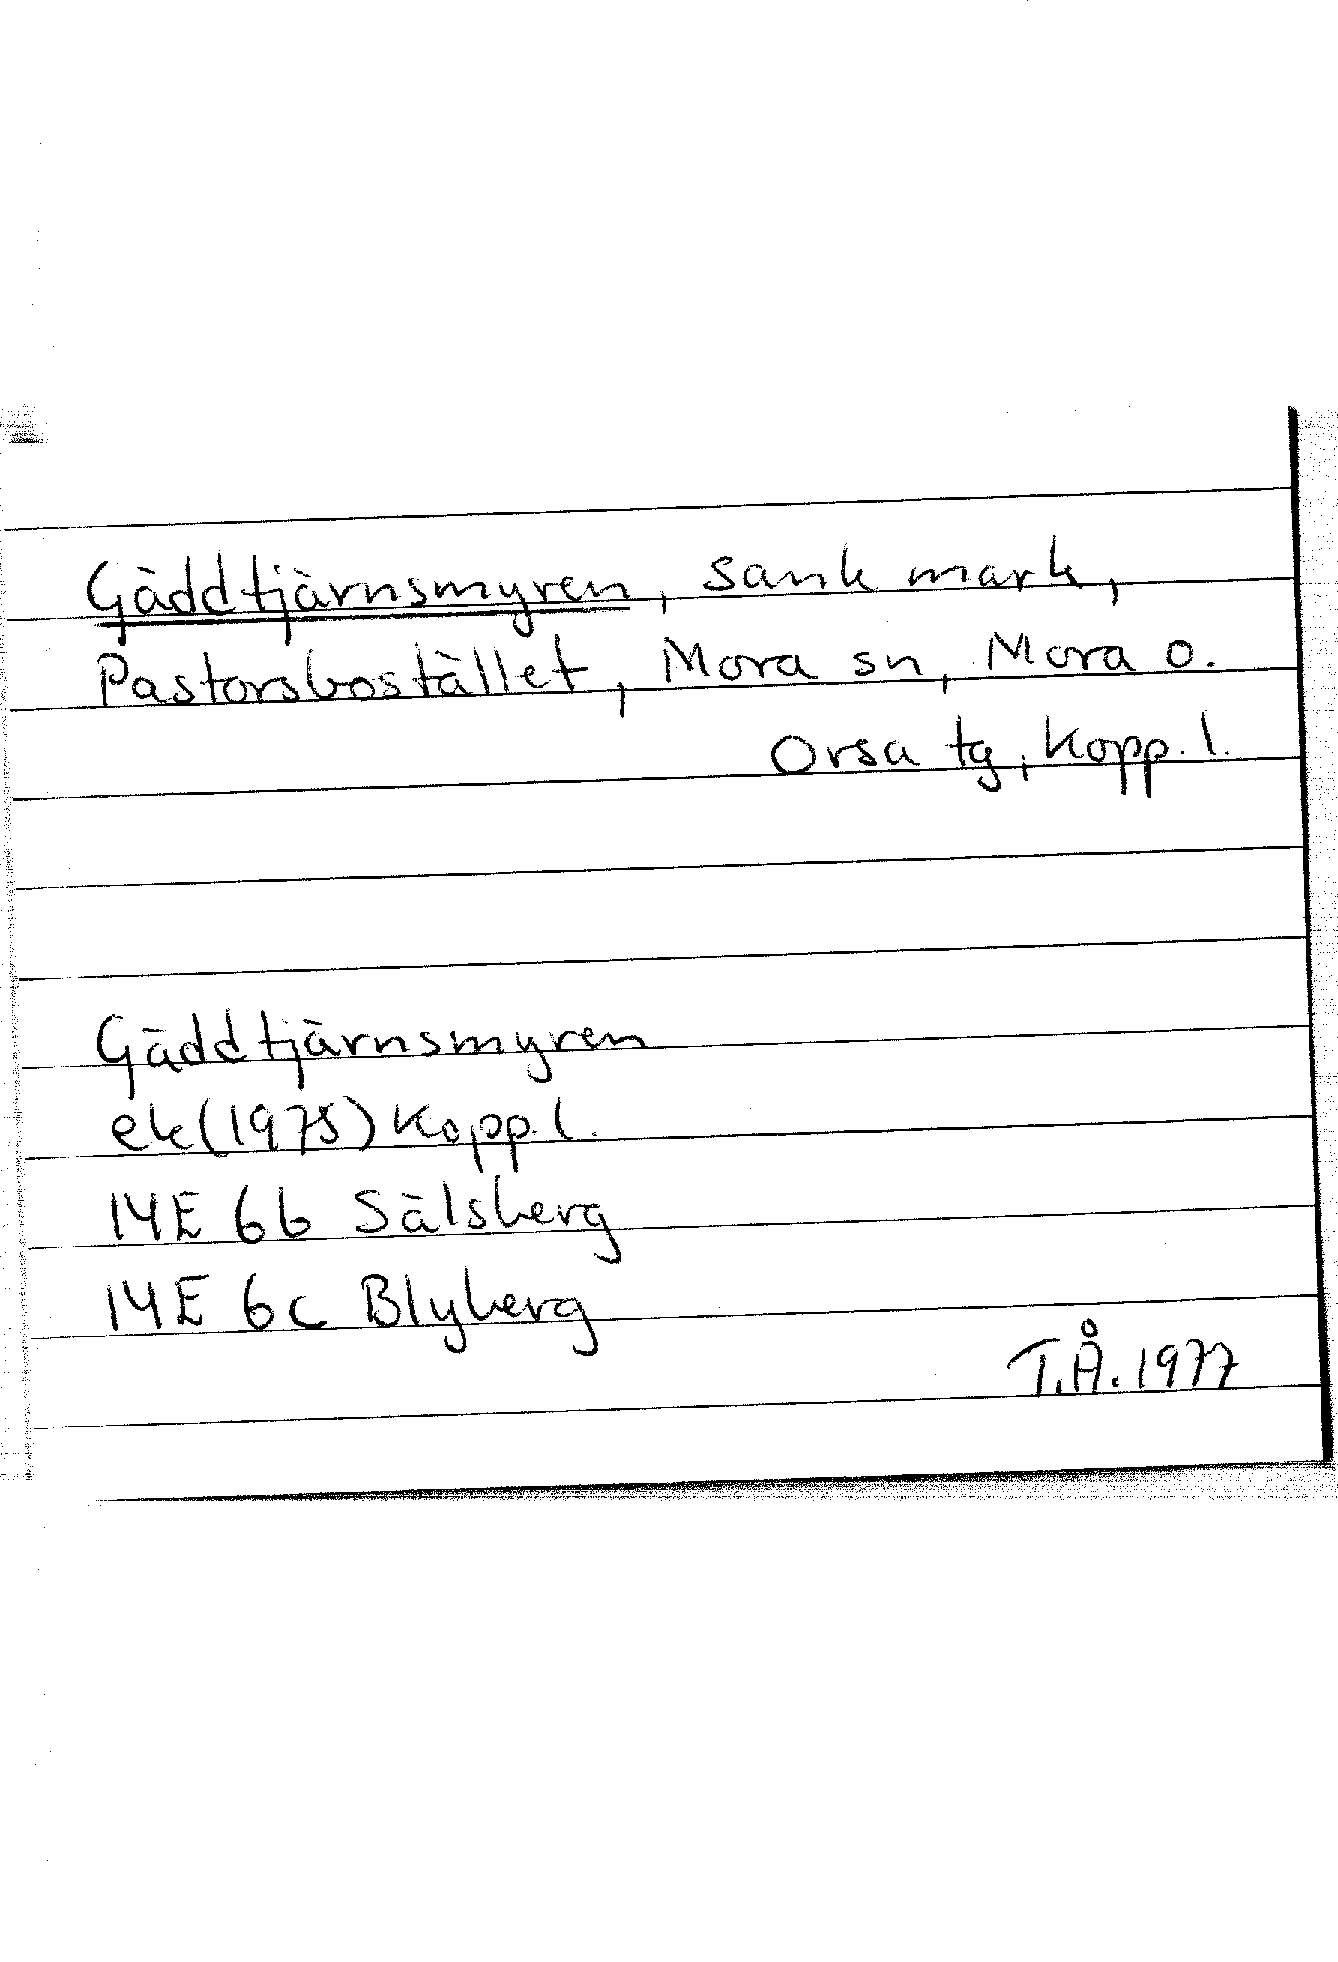 Gäddtjärnsmyren, sank mark,
Pastorsbostället, Mora sn, Mora o.
Orsa tg, Kopp. l.
Gäddtjärnsmyren
ek (1975) Kopp. l.
14E 6b Sälsberg
14E 6c Blyberg
T.Å. 1977